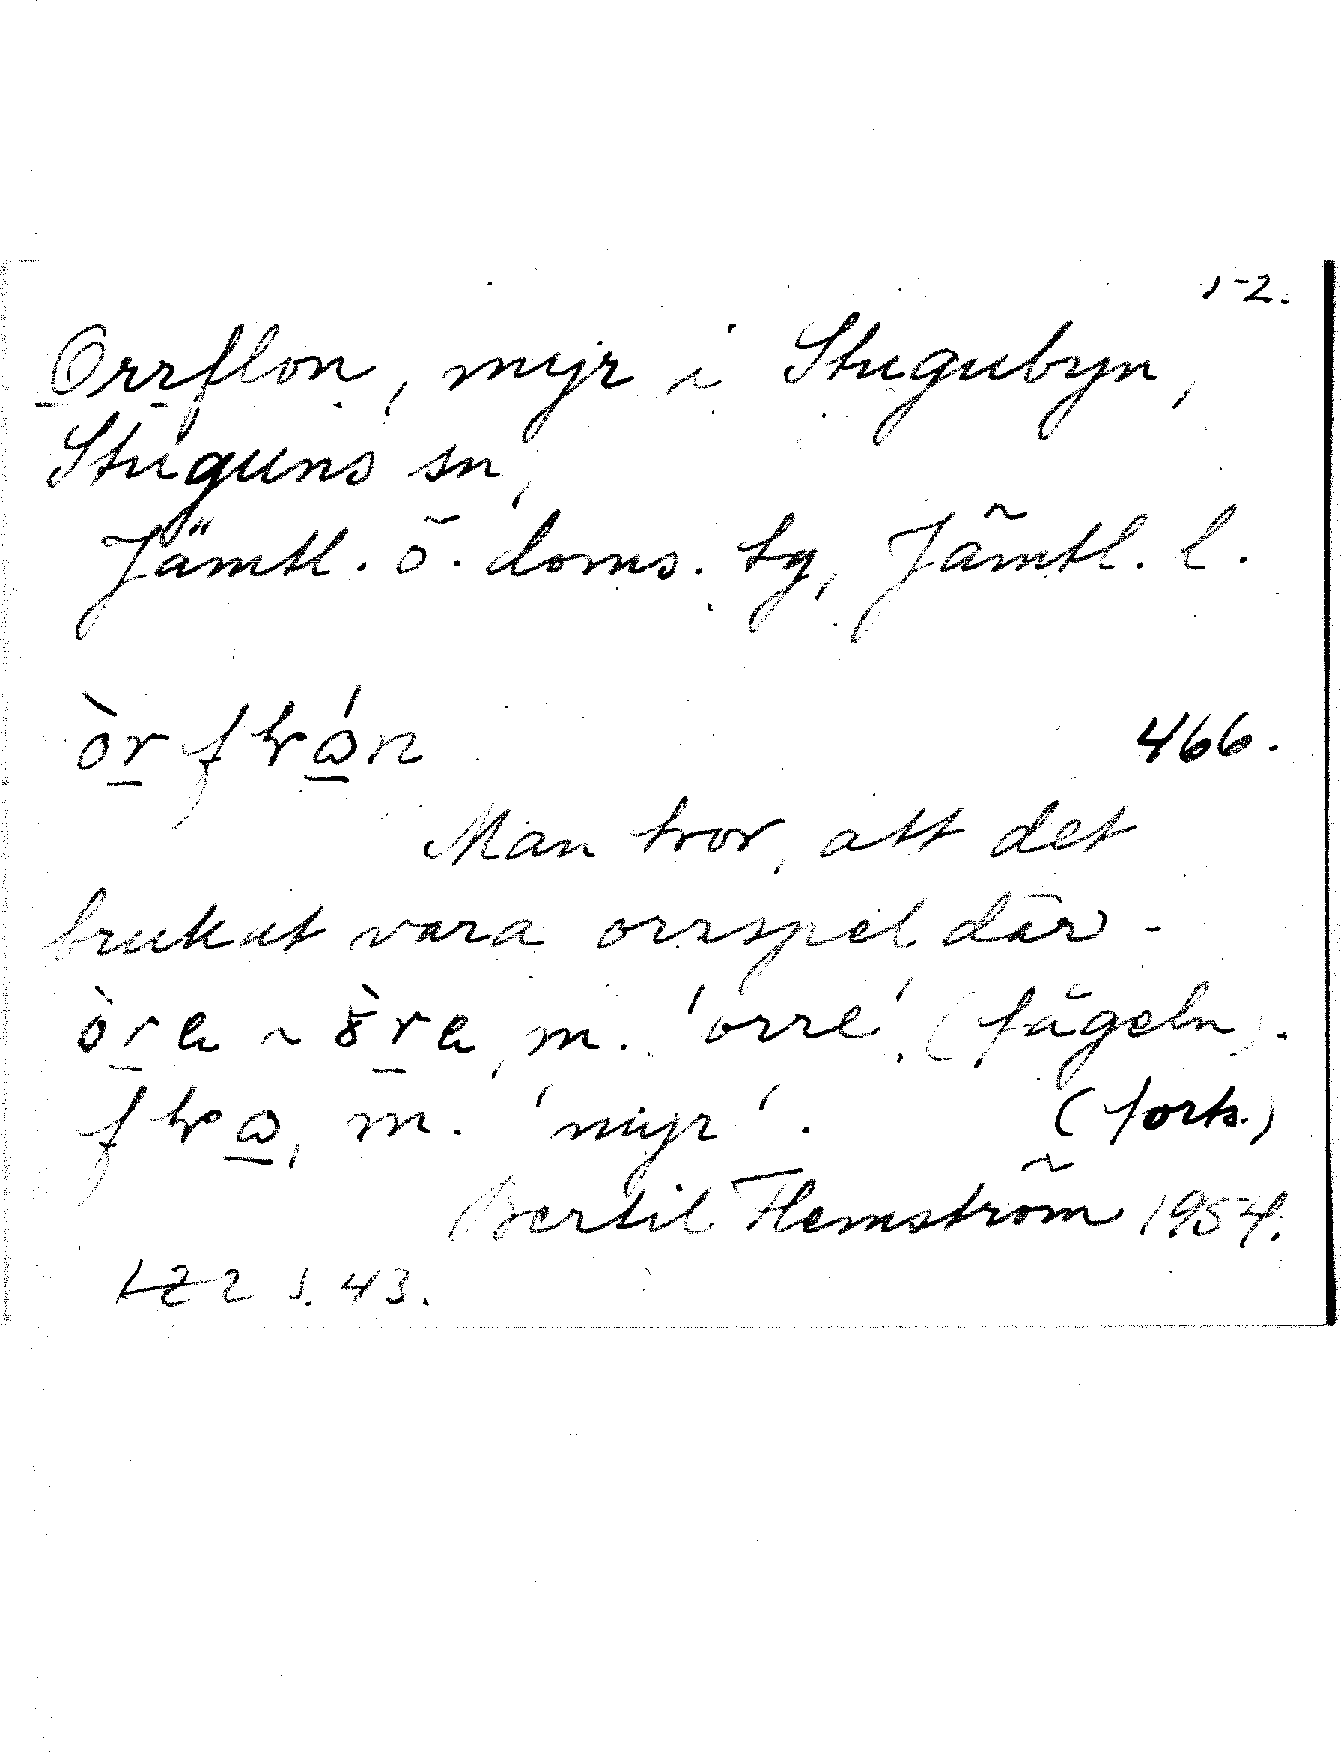 1-2.
Orrflon, myr i Stugubyn,
Stuguns sn,
Jämtl. ö. doms. tg, Jämtl. l.
466.
Man tror, att det
brukat vara orrspel där.
m. 'orre' (fågeln).
m. 'myr'. (forts.)
Bertil Flemström 1954.
s. 43.